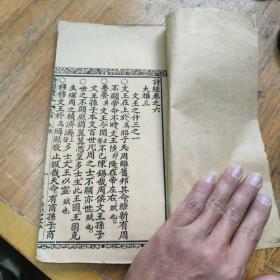 詩經卷之六
大雅三
文王之什三之一
文王在上於昭于天周雖舊邦其命維新有周
不顯帝命不時文王陟降在帝左右賦也
亹亹文王令聞不已陳錫哉周侯文王孫子
文王孫子本支百世凡周之士不顯亦世賦也
世之不顯厥猶翼翼思皇多士生此王國王國克
生維周之楨濟濟多士文王以寧賦也
穆穆文王於緝熙敬止假哉天命有商孫子商